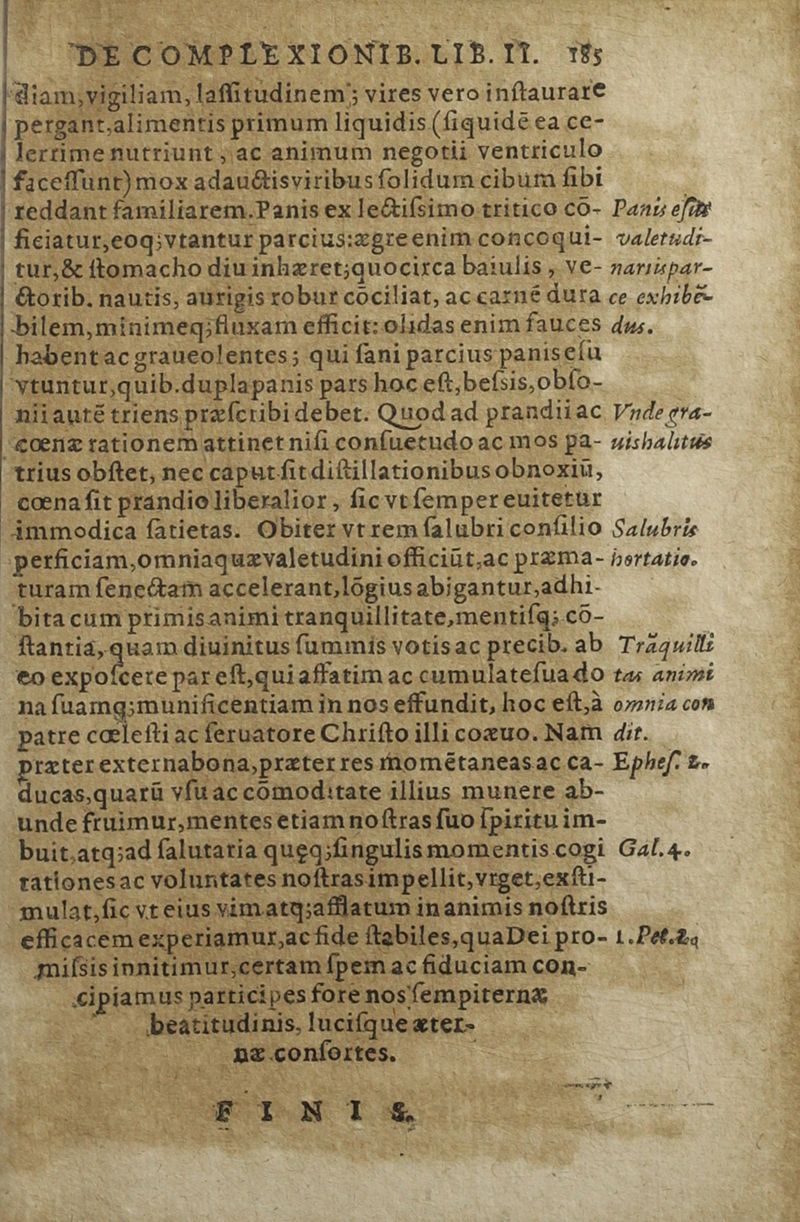 DE COMPLEXIONIB. LIB. II. 185
diam,vigiliam, laſſitudinem; vires vero inſtaurare
pergant,alimentis primum liquidis (ſiquidē ea ce-
lerrime nutriunt, ac animum negotii ventriculo
faceſſunt) mox adauctis viribus ſolidum cibum ſibi
reddant familiarem. Panis ex lectiſsimo tritico cō- Panis eſus
ficiatur,eoq;vtantur parcius:ægre enim concoqui- valetudi-
tur,& ſtomacho diu inhæret;quocirca baiulis, ve- narijs par-
ctorib. nautis, aurigis robur cōciliat, ac carnē dura ce exhibē-
bilem,minimeq;fluxam efficit: olidas enim fauces dus.
habent ac graueolentes; qui ſani parcius panis eſu
vtuntur,quib.dupla panis pars hoc eſt,beſsis,obſo-
nii autē triens præſcribi debet. Quod ad prandii ac Vnde gra-
cœnæ rationem attinet niſi conſuetudo ac mos pa- uis halitus
trius obſtet, nec caput ſit diſtillationibus obnoxiū,
cœna ſit prandio liberalior, ſic vt ſemper euitetur
immodica ſatietas. Obiter vt rem ſalubri conſilio Salubris
perficiam,omniaquæ valetudini officiūt,ac præma- hortatio.
turam ſenectam accelerant,lōgius abigantur,adhi-
bita cum primis animi tranquillitate,mentiſq; cō-
ſtantia, quam diuinitus ſummis votis ac precib. ab Trāquilli
eo expoſcere par eſt,qui affatim ac cumulate ſua do tas animi
na ſuamq;munificentiam in nos effundit, hoc eſt,à omnia con
patre cœleſti ac ſeruatore Chriſto illi coæuo. Nam dit.
præter externa bona,præter res momētaneas ac ca- Epheſ. 2.
ducas,quarū vſu ac cōmoditate illius munere ab-
unde fruimur,mentes etiam noſtras ſuo ſpiritu im-
buit,atq;ad ſalutaria quęq;ſingulis momentis cogi Gal.4.
tationes ac voluntates noſtras impellit,vrget,exſti-
mulat,ſic vt eius vim atq;afflatum in animis noſtris
efficacem experiamur,ac fide ſtabiles,qua Dei pro- 1.Pet.
miſsis innitimur,certam ſpem ac fiduciam con-
cipiamus participes fore nos ſempiternæ
beatitudinis, luciſque æter-
næ conſortes.
F I N I S.